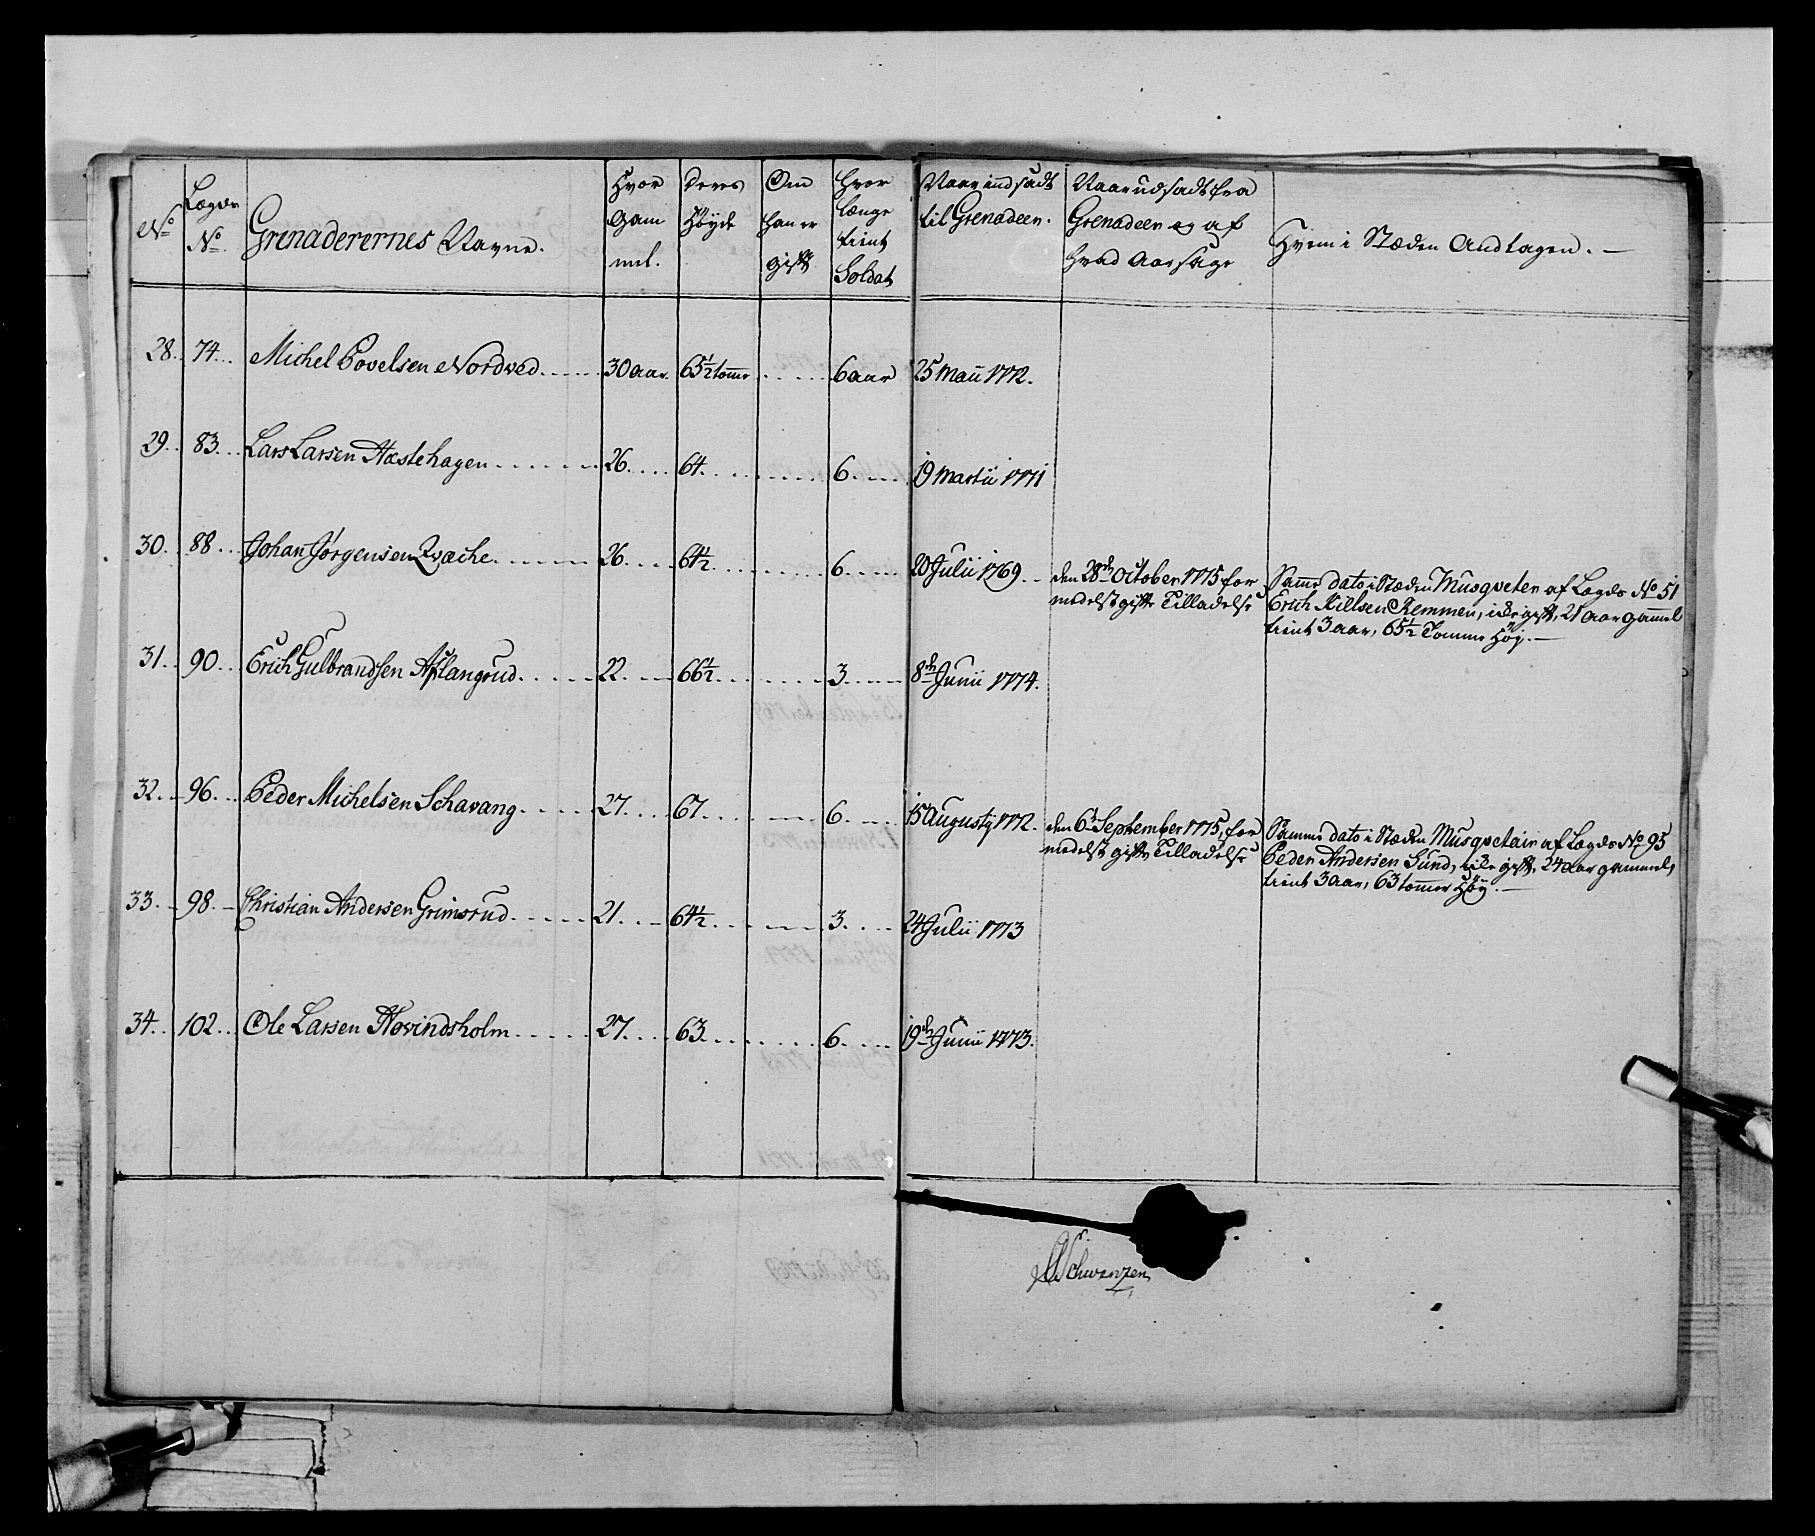 No
Lægds No
Grenaderernes Navne.
Hvor Gammel.
Deres Høyde
Om han er gift
Hvor længe tient Soldat
Naar indsadt til Grenadeer.
Naar udsadt fra Grenadeer og af hvad Aarsage
Hvem i Stæden Andtagen.
28. 74. Michel Povelsen Nordved 30 aar. 65½ tomme 6 aar 25 Maii 1772.
29. 83. Lars Larsen Hæstehagen 26. 64. 6. 19 Martii 1771
30. 88. Johan Jørgensen Qvæche 26. 64½ 6. 20 Julii 1769. den 28de October 1775 formedelst gifte Tilladelse
Samme dato i Stæden Musqveter af Lægds No 51
Erich Killsen Remmen, icke gift, 21 aar gammel
tient 3 aar, 65½ Tomme Høy.
31. 90. Erich Gulbrandsen Aslangrud 22. 66½ 3. 8de Junii 1774.
32. 96. Peder Michelsen Schavang 27. 67. 6. 15 Augustij 1772. den 6te September 1775, formedelst gifte Tilladelse
Samme dato i Stæden Musqvetair af Lægds No 95
Peder Andersen Sund, icke gift, 24 aar gammel,
tient 3 aar, 63 tommer Høy.
33. 98. Christian Andersen Grimsrud 21. 64½ 3. 24 Julii 1773
34. 102. Ole Larsen Hovindsholm 27. 63. 6. 19de Junii 1773.
Schwenzen